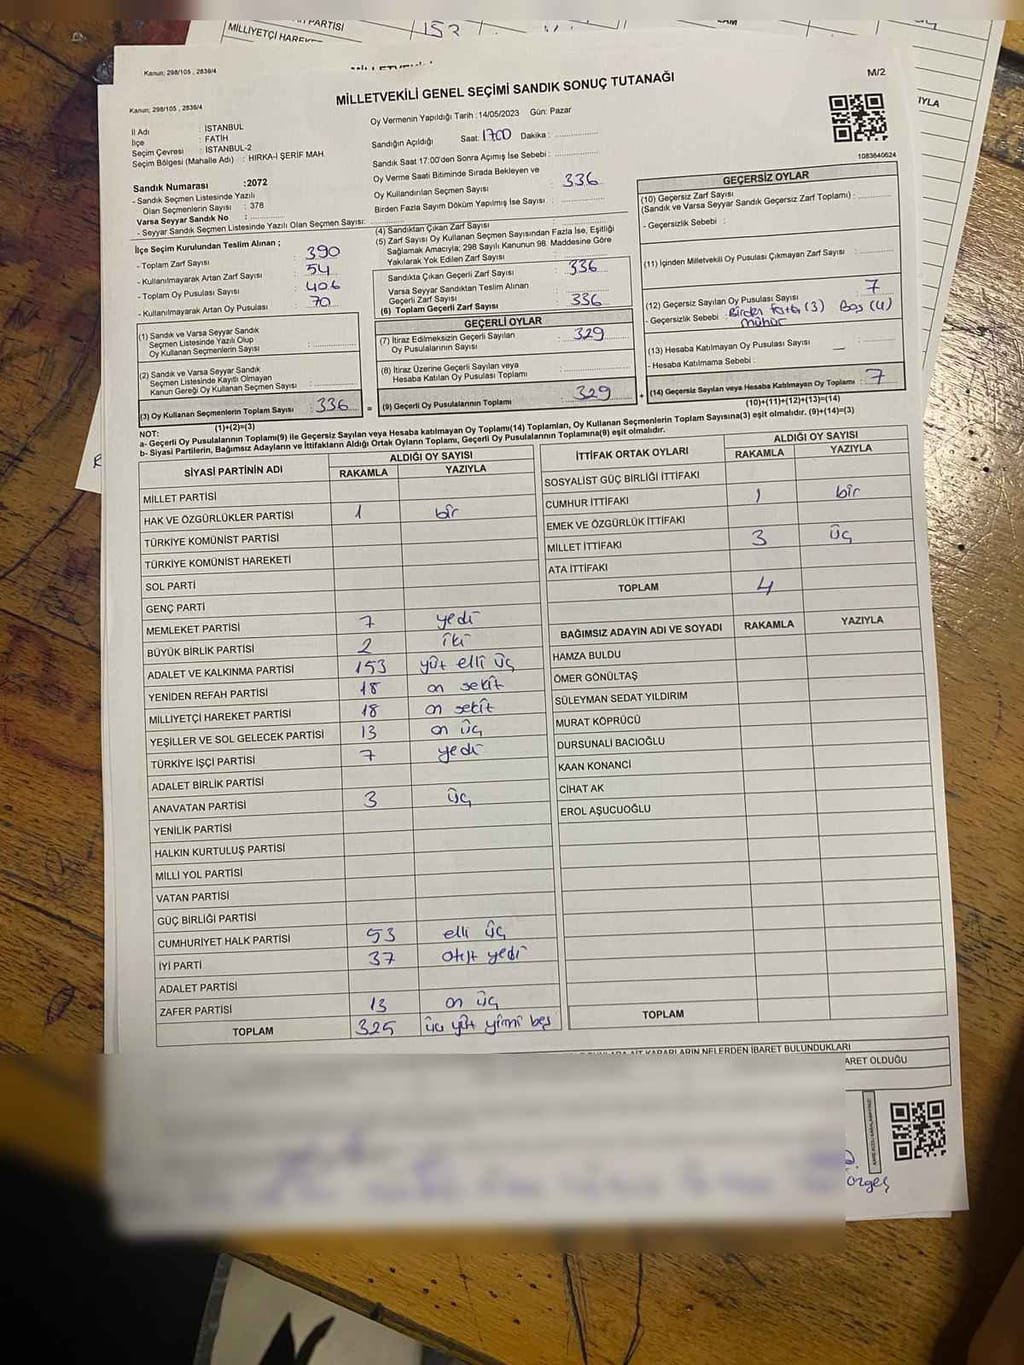 PARTİSİ
MİLLİYETÇİ HAREK
153
YLA
Kanun; 298/105 , 2839/4
Kanun; 298/105 , 2839/4
MİLLETVEKİLİ GENEL SEÇİMİ SANDIK SONUÇ TUTANAĞI
M/2
İl Adı : İSTANBUL
İlçe : FATİH
Seçim Çevresi : İSTANBUL-2
Seçim Bölgesi (Mahalle Adı) : HIRKA-İ ŞERİF MAH.
Oy Vermenin Yapıldığı Tarih :14/05/2023 Gün: Pazar
Sandığın Açıldığı Saat: 1700 Dakika : ..................
Sandık Saat 17:00'den Sonra Açımış İse Sebebi : ..................
Oy Verme Saati Bitiminde Sırada Bekleyen ve
Oy Kullandırılan Seçmen Sayısı : 336
Birden Fazla Sayım Döküm Yapılmış İse Sayısı : ..................
1083640624
Sandık Numarası :2072
- Sandık Seçmen Listesinde Yazılı
Olan Seçmenlerin Sayısı : 378
Varsa Seyyar Sandık No : ..................
- Seyyar Sandık Seçmen Listesinde Yazılı Olan Seçmen Sayısı: ..................
İlçe Seçim Kurulundan Teslim Alınan ;
- Toplam Zarf Sayısı : 390
- Kullanılmayarak Artan Zarf Sayısı : 54
- Toplam Oy Pusulası Sayısı : 406
- Kullanılmayarak Artan Oy Pusulası : 70
(1) Sandık ve Varsa Seyyar Sandık
Seçmen Listesinde Yazılı Olup
Oy Kullanan Seçmenlerin Sayısı : ..................
(2) Sandık ve Varsa Seyyar Sandık
Seçmen Listesinde Kayıtlı Olmayan
Kanun Gereği Oy Kullanan Seçmen Sayısı : ..................
(3) Oy Kullanan Seçmenlerin Toplam Sayısı : 336 =
(1)+(2)=(3)
(4) Sandıktan Çıkan Zarf Sayısı : ..................
(5) Zarf Sayısı Oy Kullanan Seçmen Sayısından Fazla İse, Eşitliği
Sağlamak Amacıyla; 298 Sayılı Kanunun 98. Maddesine Göre
Yakılarak Yok Edilen Zarf Sayısı : ..................
Sandıkta Çıkan Geçerli Zarf Sayısı : 336
Varsa Seyyar Sandıktan Teslim Alınan
Geçerli Zarf Sayısı : ..................
(6) Toplam Geçerli Zarf Sayısı : 336
GEÇERLİ OYLAR
(7) İtiraz Edilmeksizin Geçerli Sayılan
Oy Pusulalarının Sayısı : 329
(8) İtiraz Üzerine Geçerli Sayılan veya
Hesaba Katılan Oy Pusulası Toplamı : ..................
(9) Geçerli Oy Pusulalarının Toplamı : 329 +
GEÇERSİZ OYLAR
(10) Geçersiz Zarf Sayısı
(Sandık ve Varsa Seyyar Sandık Geçersiz Zarf Toplamı) : ..................
- Geçersizlik Sebebi : ..................
(11) İçinden Milletvekili Oy Pusulası Çıkmayan Zarf Sayısı : ..................
(12) Geçersiz Sayılan Oy Pusulası Sayısı : 7
- Geçersizlik Sebebi : Birden fazla (3) Boş (4)
mühür
(13) Hesaba Katılmayan Oy Pusulası Sayısı : —
- Hesaba Katılmama Sebebi : ..................
(14) Geçersiz Sayılan veya Hesaba Katılmayan Oy Toplamı : 7
(10)+(11)+(12)+(13)=(14)
NOT:
a- Geçerli Oy Pusulalarının Toplamı(9) ile Geçersiz Sayılan veya Hesaba katılmayan Oy Toplamı(14) Toplamları, Oy Kullanan Seçmenlerin Toplam Sayısına(3) eşit olmalıdır. (9)+(14)=(3)
b- Siyasi Partilerin, Bağımsız Adayların ve İttifakların Aldığı Ortak Oyların Toplamı, Geçerli Oy Pusulalarının Toplamına(9) eşit olmalıdır.
SİYASİ PARTİNİN ADI ALDIĞI OY SAYISI
RAKAMLA YAZIYLA
MİLLET PARTİSİ
HAK VE ÖZGÜRLÜKLER PARTİSİ 1 bir
TÜRKİYE KOMÜNİST PARTİSİ
TÜRKİYE KOMÜNİST HAREKETİ
SOL PARTİ
GENÇ PARTİ
MEMLEKET PARTİSİ 7 yedi
BÜYÜK BİRLİK PARTİSİ 2 iki
ADALET VE KALKINMA PARTİSİ 153 yüz elli üç
YENİDEN REFAH PARTİSİ 18 on sekiz
MİLLİYETÇİ HAREKET PARTİSİ 18 on sekiz
YEŞİLLER VE SOL GELECEK PARTİSİ 13 on üç
TÜRKİYE İŞÇİ PARTİSİ 7 yedi
ADALET BİRLİK PARTİSİ
ANAVATAN PARTİSİ 3 üç
YENİLİK PARTİSİ
HALKIN KURTULUŞ PARTİSİ
MİLLİ YOL PARTİSİ
VATAN PARTİSİ
GÜÇ BİRLİĞİ PARTİSİ
CUMHURİYET HALK PARTİSİ 53 elli üç
İYİ PARTİ 37 otuz yedi
ADALET PARTİSİ
ZAFER PARTİSİ 13 on üç
TOPLAM 325 üç yüz yirmi beş
İTTİFAK ORTAK OYLARI ALDIĞI OY SAYISI
RAKAMLA YAZIYLA
SOSYALİST GÜÇ BİRLİĞİ İTTİFAKI
CUMHUR İTTİFAKI 1 bir
EMEK VE ÖZGÜRLÜK İTTİFAKI
MİLLET İTTİFAKI 3 üç
ATA İTTİFAKI
TOPLAM 4
BAĞIMSIZ ADAYIN ADI VE SOYADI RAKAMLA YAZIYLA
HAMZA BULDU
ÖMER GÖNÜLTAŞ
SÜLEYMAN SEDAT YILDIRIM
MURAT KÖPRÜCÜ
DURSUNALİ BACIOĞLU
KAAN KONANCİ
CİHAT AK
EROL AŞUCUOĞLU
TOPLAM
KARARLARIN NELERDEN İBARET BULUNDUKLARI
ARET OLDUĞU